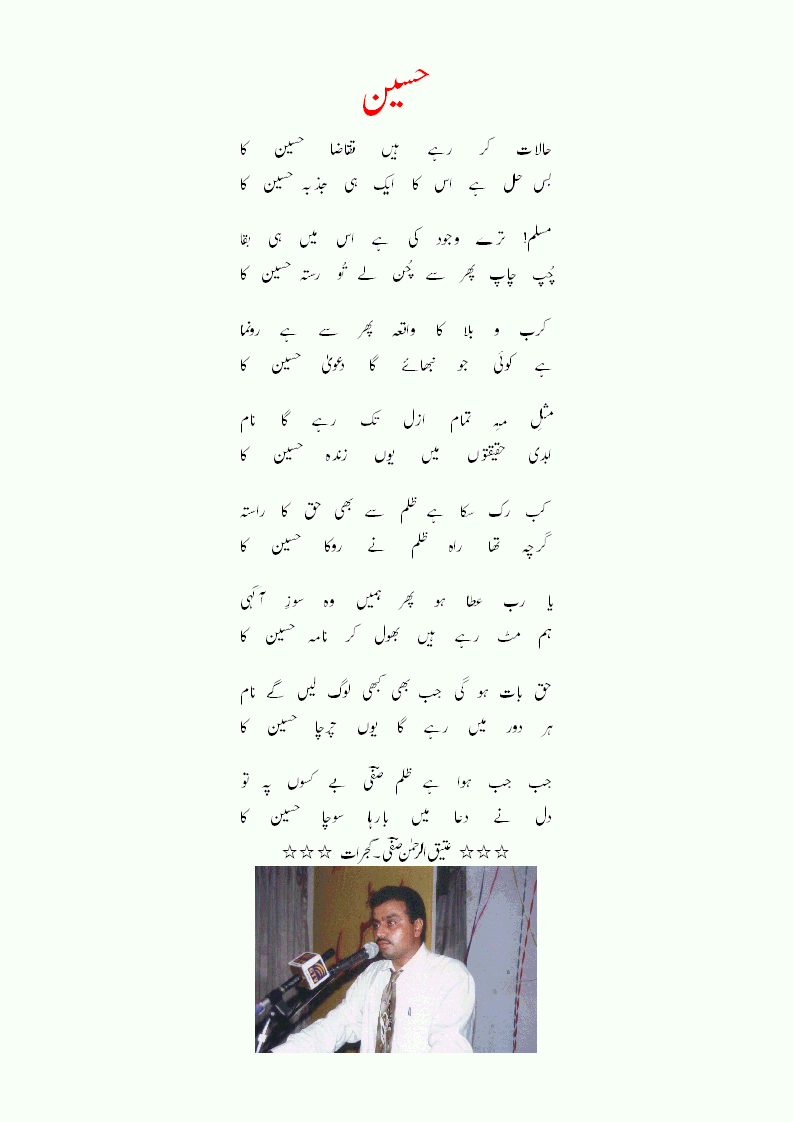 حسین
حالات کر رہے ہیں تقاضا حسین کا
بس حل ہے اس کا ایک ہی جذبہ حسین کا
مسلم! ترے وجود کی ہے اس میں ہی بقا
چُپ چاپ پھر سے چُن لے تُو رستہ حسین کا
کرب و بلا کا واقعہ پھر سے ہے رونما
ہے کوئی جو نبھائے گا دعویٰ حسین کا
مثلِ مہِ تمام ازل تک رہے گا نام
ابدی حقیقتوں میں یوں زندہ حسین کا
کب رک سکا ہے ظلم سے بھی حق کا راستہ
گرچہ تھا راہ ظلم نے روکا حسین کا
یا رب عطا ہو پھر ہمیں وہ سوزِ آگہی
ہم مٹ رہے ہیں بھول کر نامہ حسین کا
حق بات ہو گی جب بھی کبھی لوگ لیں گے نام
ہر دور میں رہے گا یوں چرچا حسین کا
جب جب ہوا ہے ظلم صفؔی بے کسوں پہ تو
دل نے دعا میں بارہا سوچا حسین کا
☆☆☆ عتیق الرحمٰن صفؔی۔گجرات ☆☆☆